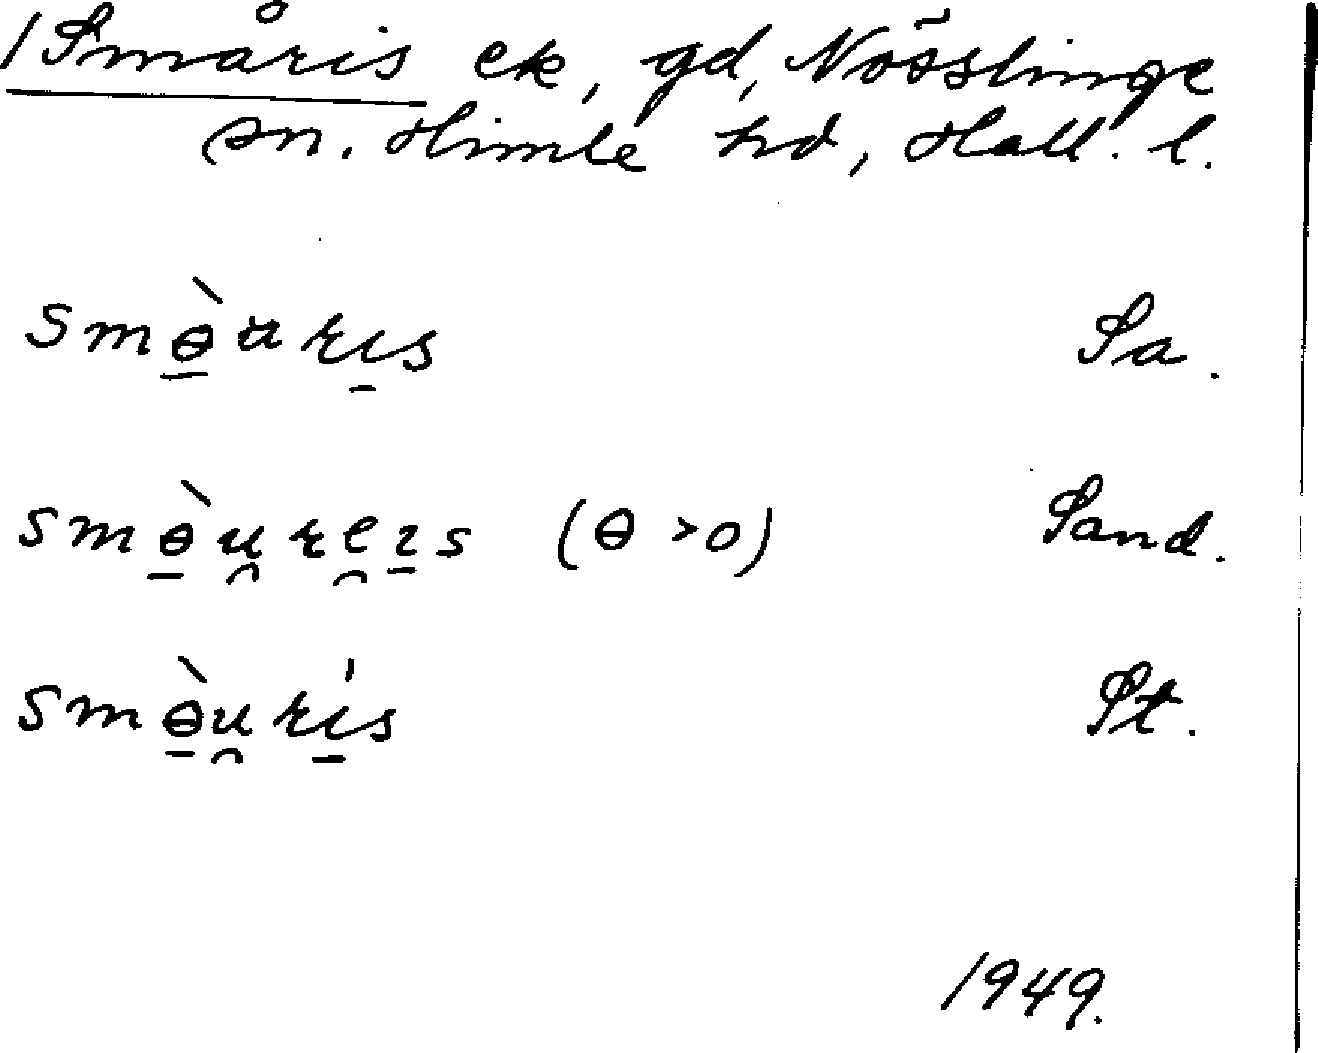 /Småris ek, gd, Nösslinge
sn. Himle hd, Hall. l.
smɵ̲̀uri̲s Sa.
smɵ̲̀u̯re̯ɪ̲s (ɵ > o) Sand.
smɵ̲̀u̯ri̲s St.
1949.